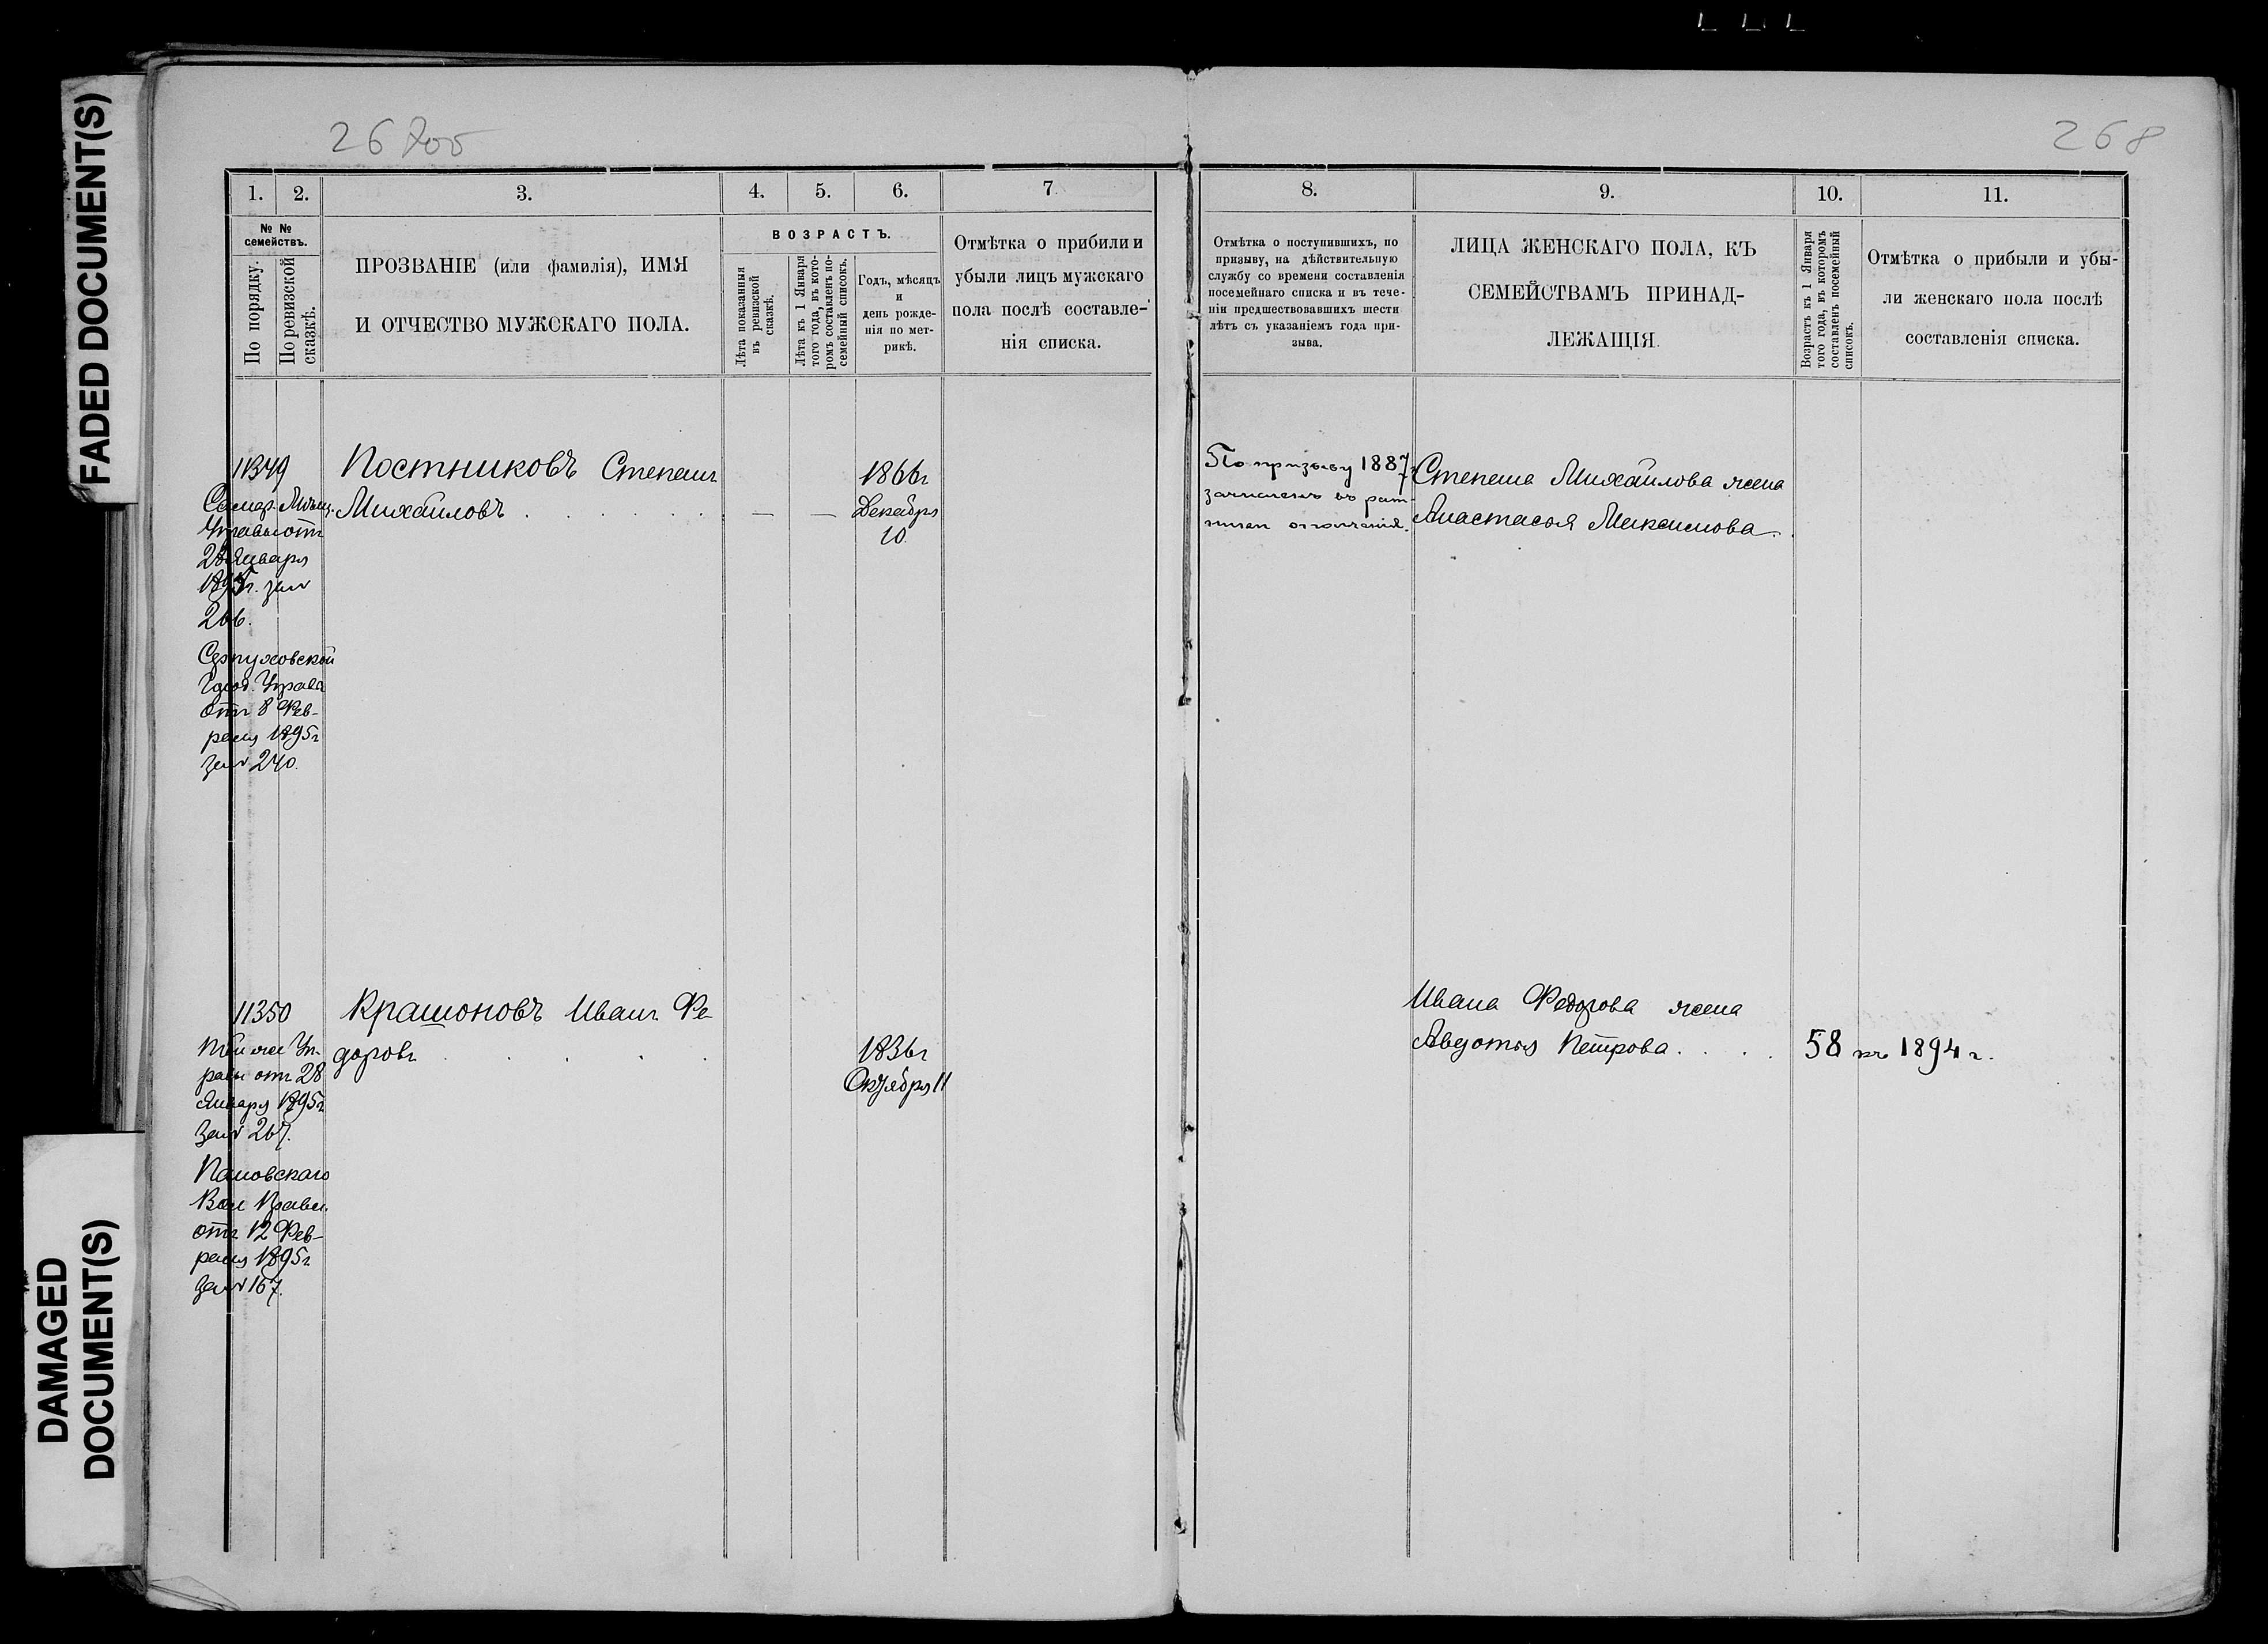 FADED DOCUMENT(S)
DAMAGED
DOCUMENT(S)
268
1.
2.
3.
4.
5.
6.
7.
№ №
семействъ.
По порядку.
По ревизской
сказкѣ.
ПРОЗВАНІЕ (или фамилія), ИМЯ
И ОТЧЕСТВО МУЖСКАГО ПОЛА.
ВОЗРАСТЪ.
Лѣта показанныя
въ ревизской
сказкѣ.
Лѣта къ 1 Января
того года, въ кото-
ромъ составленъ по-
семейный списокъ.
Годъ, мѣсяцъ
и
день рожде-
нія по мет-
рикѣ.
Отмѣтка о прибыли и
убыли лицъ мужскаго
пола послѣ составле-
нія списка.
11349
Самар. Мѣщ.
Управы отъ
28 Января
1895г. за №
266.
Серпуховской
Город. Управы
отъ 8 Фев-
раля 1895г
за № 240.
Постниковъ Степанъ
Михайловъ
1866г
Декабря
10
11350
Той же Уп-
равы отъ 28
Января 1895г
за № 267.
Вол Правл.
отъ 12 Фев-
раля 1895г
за № 167.
Крашоновъ Иванъ Фе-
доровъ
1836г
Октября 11
8.
9.
10.
11.
Отмѣтка о поступившихъ, по
призыву, на дѣйствительную
службу со времени составленія
посемейнаго списка и въ тече-
ніи предшествовавшихъ шести
лѣтъ съ указаніемъ года при-
зыва.
ЛИЦА ЖЕНСКАГО ПОЛА, КЪ
СЕМЕЙСТВАМЪ ПРИНАД-
ЛЕЖАЩІЯ.
Возрастъ къ 1 Января
того года, въ которомъ
составленъ посемейный
списокъ.
Отмѣтка о прибыли и убы-
ли женскаго пола послѣ
составленія списка.
По призыву 1887 г
зачисленъ въ рат-
ники ополченія.
Степана Михайлова жена
Анастасія Максимова.
Ивана Федорова жена
Авдотья Петрова
58 къ 1894 г.